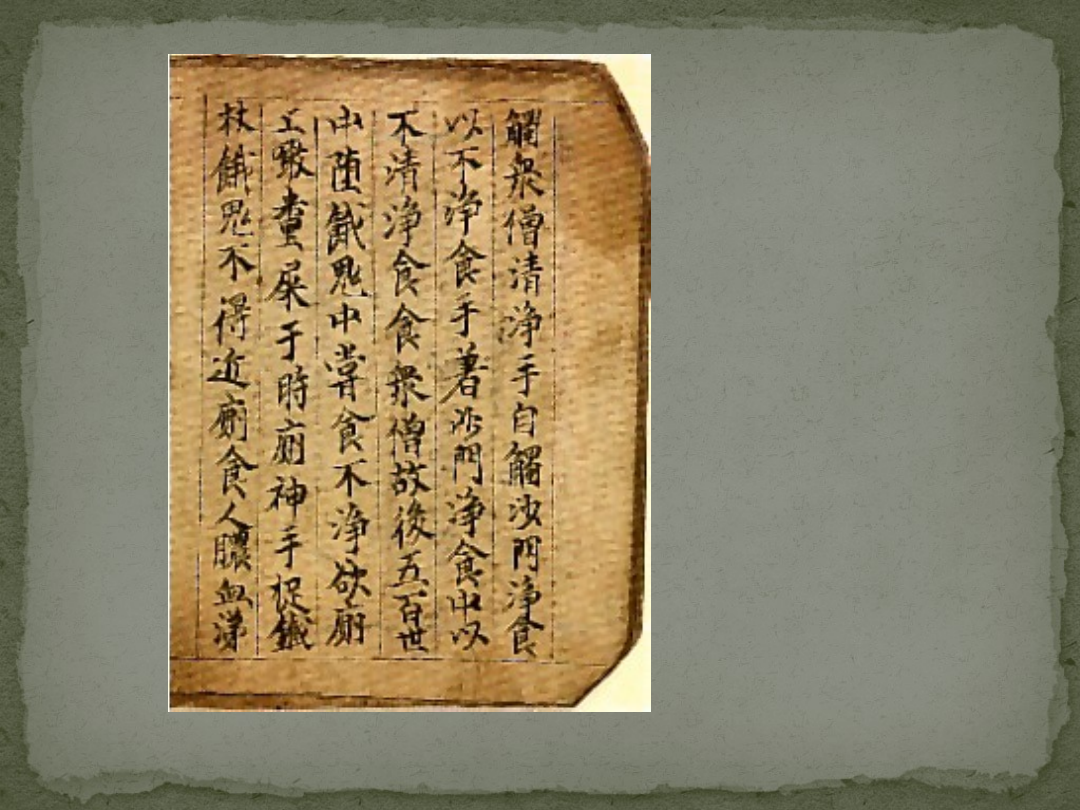 觸衆僧清淨手自觸沙門淨食
以不淨食手著沙門淨食中以
不清淨食食衆僧故後五百世
中墮餓鬼中常食不淨欲廁
上噉糞屎于時廁神手捉鐵
杖餓鬼不得近廁食人膿血涕